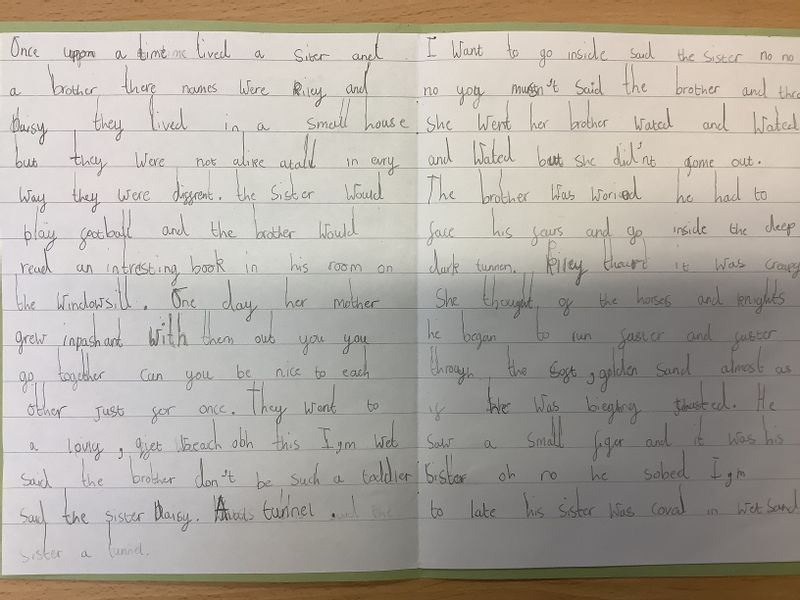 Once uppon a time lived a Siter and
a brother there names were Riley and
Daisy , they lived in a small house
but they were not alike atall in evry
way they were diffrent. the Sister Would
play football and the brother Would
read an intresting book in his room on
the Windowsill. One day her mother
grew inpashant With them out you you
go together Can you be nice to each
other just for once. They Went to
a loing , qiet beach obh this I,m Wet
said the brother don't be Such a toddler
said the sister Daisy. tunnel and the
sister a tunnel.
I Want to go inside said the Sister no no
no you musn't Said the brother and
She Went her brother Wated and Wated
and Wated but She did'nt come out.
The brother Was Woried he had to
face his fears and go inside the deep
dark tunnen. Riley thaurt it Was Creapy
She thought of the horses and knights
he began to run faster and faster
through the soft , golden Sand almost as
if he Was biegting He
Saw a Small figer and it was his
Sister oh no he sobed I,m
to late his Sister Was Coval in Wet Sand